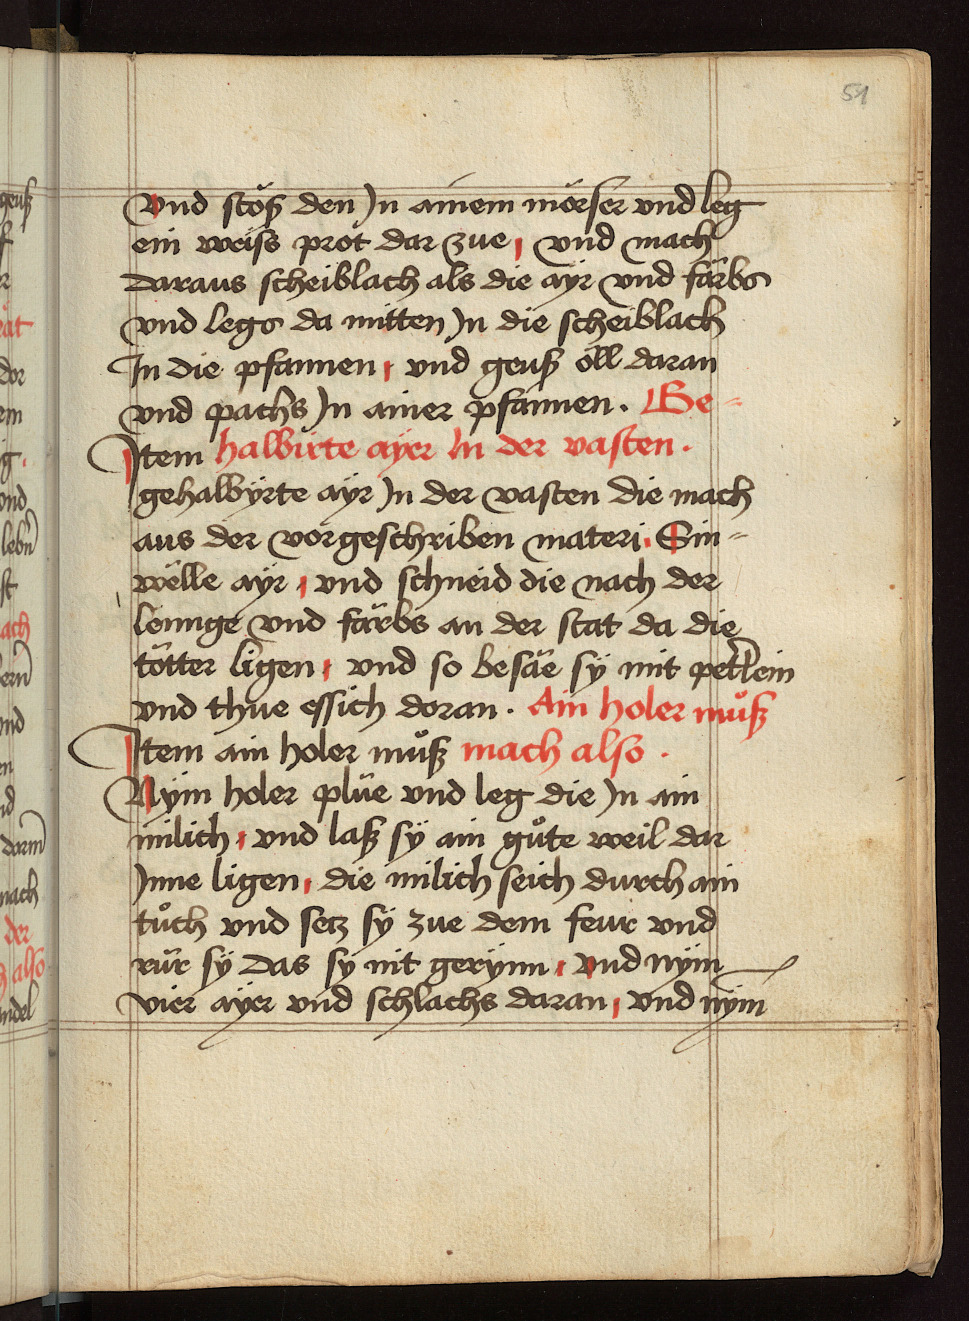 51
vnd stöß den Jn ainem mörser vnd leg
ein weiss prot dar zue, vnd mach
daraus scheiblach als die ayr vnd färbs
vnd legs da mitten Jn die scheiblach
Jn die pfannen, vnd geuß öll daran
vnd pachs Jn ainer pfannen. Ge-
Jtem halbirte ayer in der vasten.
gehalbyrte ayr Jn der vasten die mach
aus der vorgeschriben materi. Sin-
wëlle ayr, vnd schneid die nach der
lennge vnd färbs an der stat da die
tötter ligen, vnd so besäe sÿ mit petrlein
vnd thue essich doran. Ain holer můß
Jtem ain holer můß mach also.
Nÿm holer plüe vnd leg die Jn ain
milich, vnd laß sÿ ain gůte weil dar
Jnne ligen, die milich seich durch ain
tůch vnd setz sÿ zue dem feur vnd
rür sÿ das sÿ nit gerÿnn, vnd nÿm
vier aÿer vnd schlachs daran, vnd nÿm